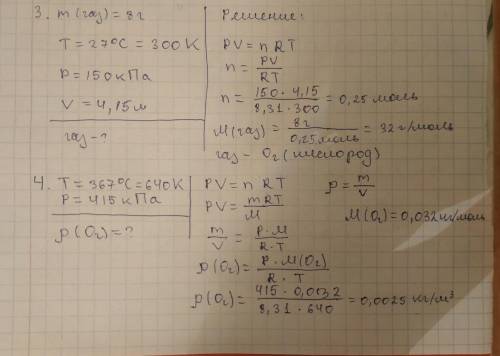 3. m(газ) = 8г
T = 27°C = 300 K
P = 150 кПа
V = 4,15 л
газ - ?
Решение:
PV = n RT
n = PV / RT
n = 150 · 4,15 / 8,31 · 300 = 0,25 моль
M(газ) = 8г / 0,25 моль = 32 г/моль
газ - O₂ (кислород)
4. T = 367°C = 640K
P = 415 кПа
ρ (O₂) = ?
PV = n RT
PV = mRT / M
m / V = P · M / R · T
ρ(O₂) = P · M(O₂) / R · T
ρ(O₂) = 415 · 0,0032 / 8,31 · 640 = 0,0025 кг/м³
ρ = m / V
M(O₂) = 0,032 кг/моль